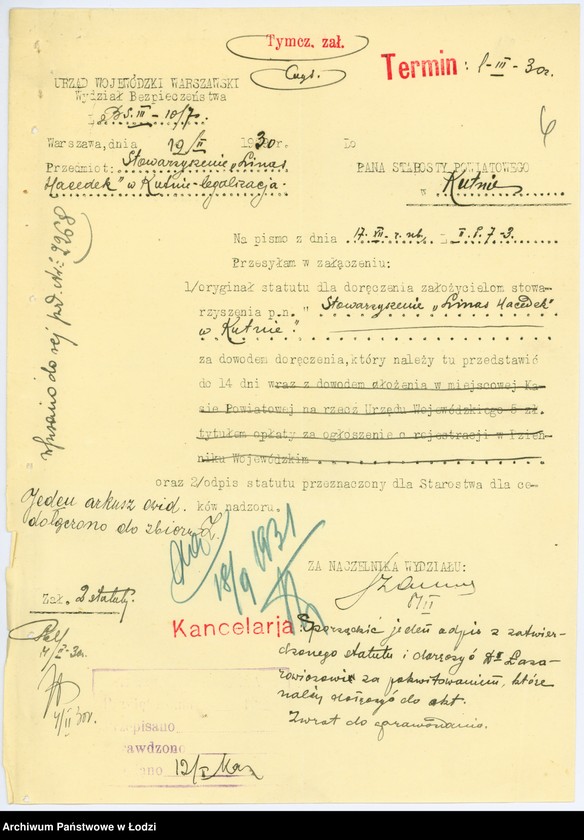 Tymcz. zał.
Termin: 1-III-30r.
URZĄD WOJEWÓDZKI WARSZAWSKI
Wydział Bezpieczeństwa
L. III-10/7
6
Warszawa, dnia 12/II 1930r.
Do
PANA STAROSTY POWIATOWEGO
w Kutnie
Przedmiot: Stowarzyszenie „Linas
Hacedek” w Kutnie-legalizacja.
Na pismo z dnia 17.VII-r.ub. L II.8.7-3.
Przesyłam w załączeniu:
1/oryginał statutu dla doręczenia założycielom stowa-
rzyszenia p.n. " Stowarzyszenie „Linas Hacedek”
w Kutnie."
za dowodem doręczenia, który należy tu przedstawić
do 14 dni wraz z dowodem złożenia w miejscowej Ka-
sie Powiatowej na rzecz Urzędu Wojewódzkiego 5 zł.
tytułem opłaty za ogłoszenie o rejestracji w Dzien-
niku Wojewódzkim
oraz 2/odpis statutu przeznaczony dla Starostwa dla ce-
ków nadzoru.
Wpisano do rej. pod nr: 2268
Jeden arkusz ewid.
dołączono do zbioru
18/9 1931
ZA NACZELNIKA WYDZIAŁU:
Zał. 2 statuty.
Kancelarja.
Sporządzić jeden odpis z zatwier-
dzonego statutu i doręczyć Laza-
rowiczowi za pokwitowaniem, które
należy dołączyć do akt.
Zwrot do sprawdzenia.
pisano
rawdzono
12/
Archiwum Państwowe w Łodzi